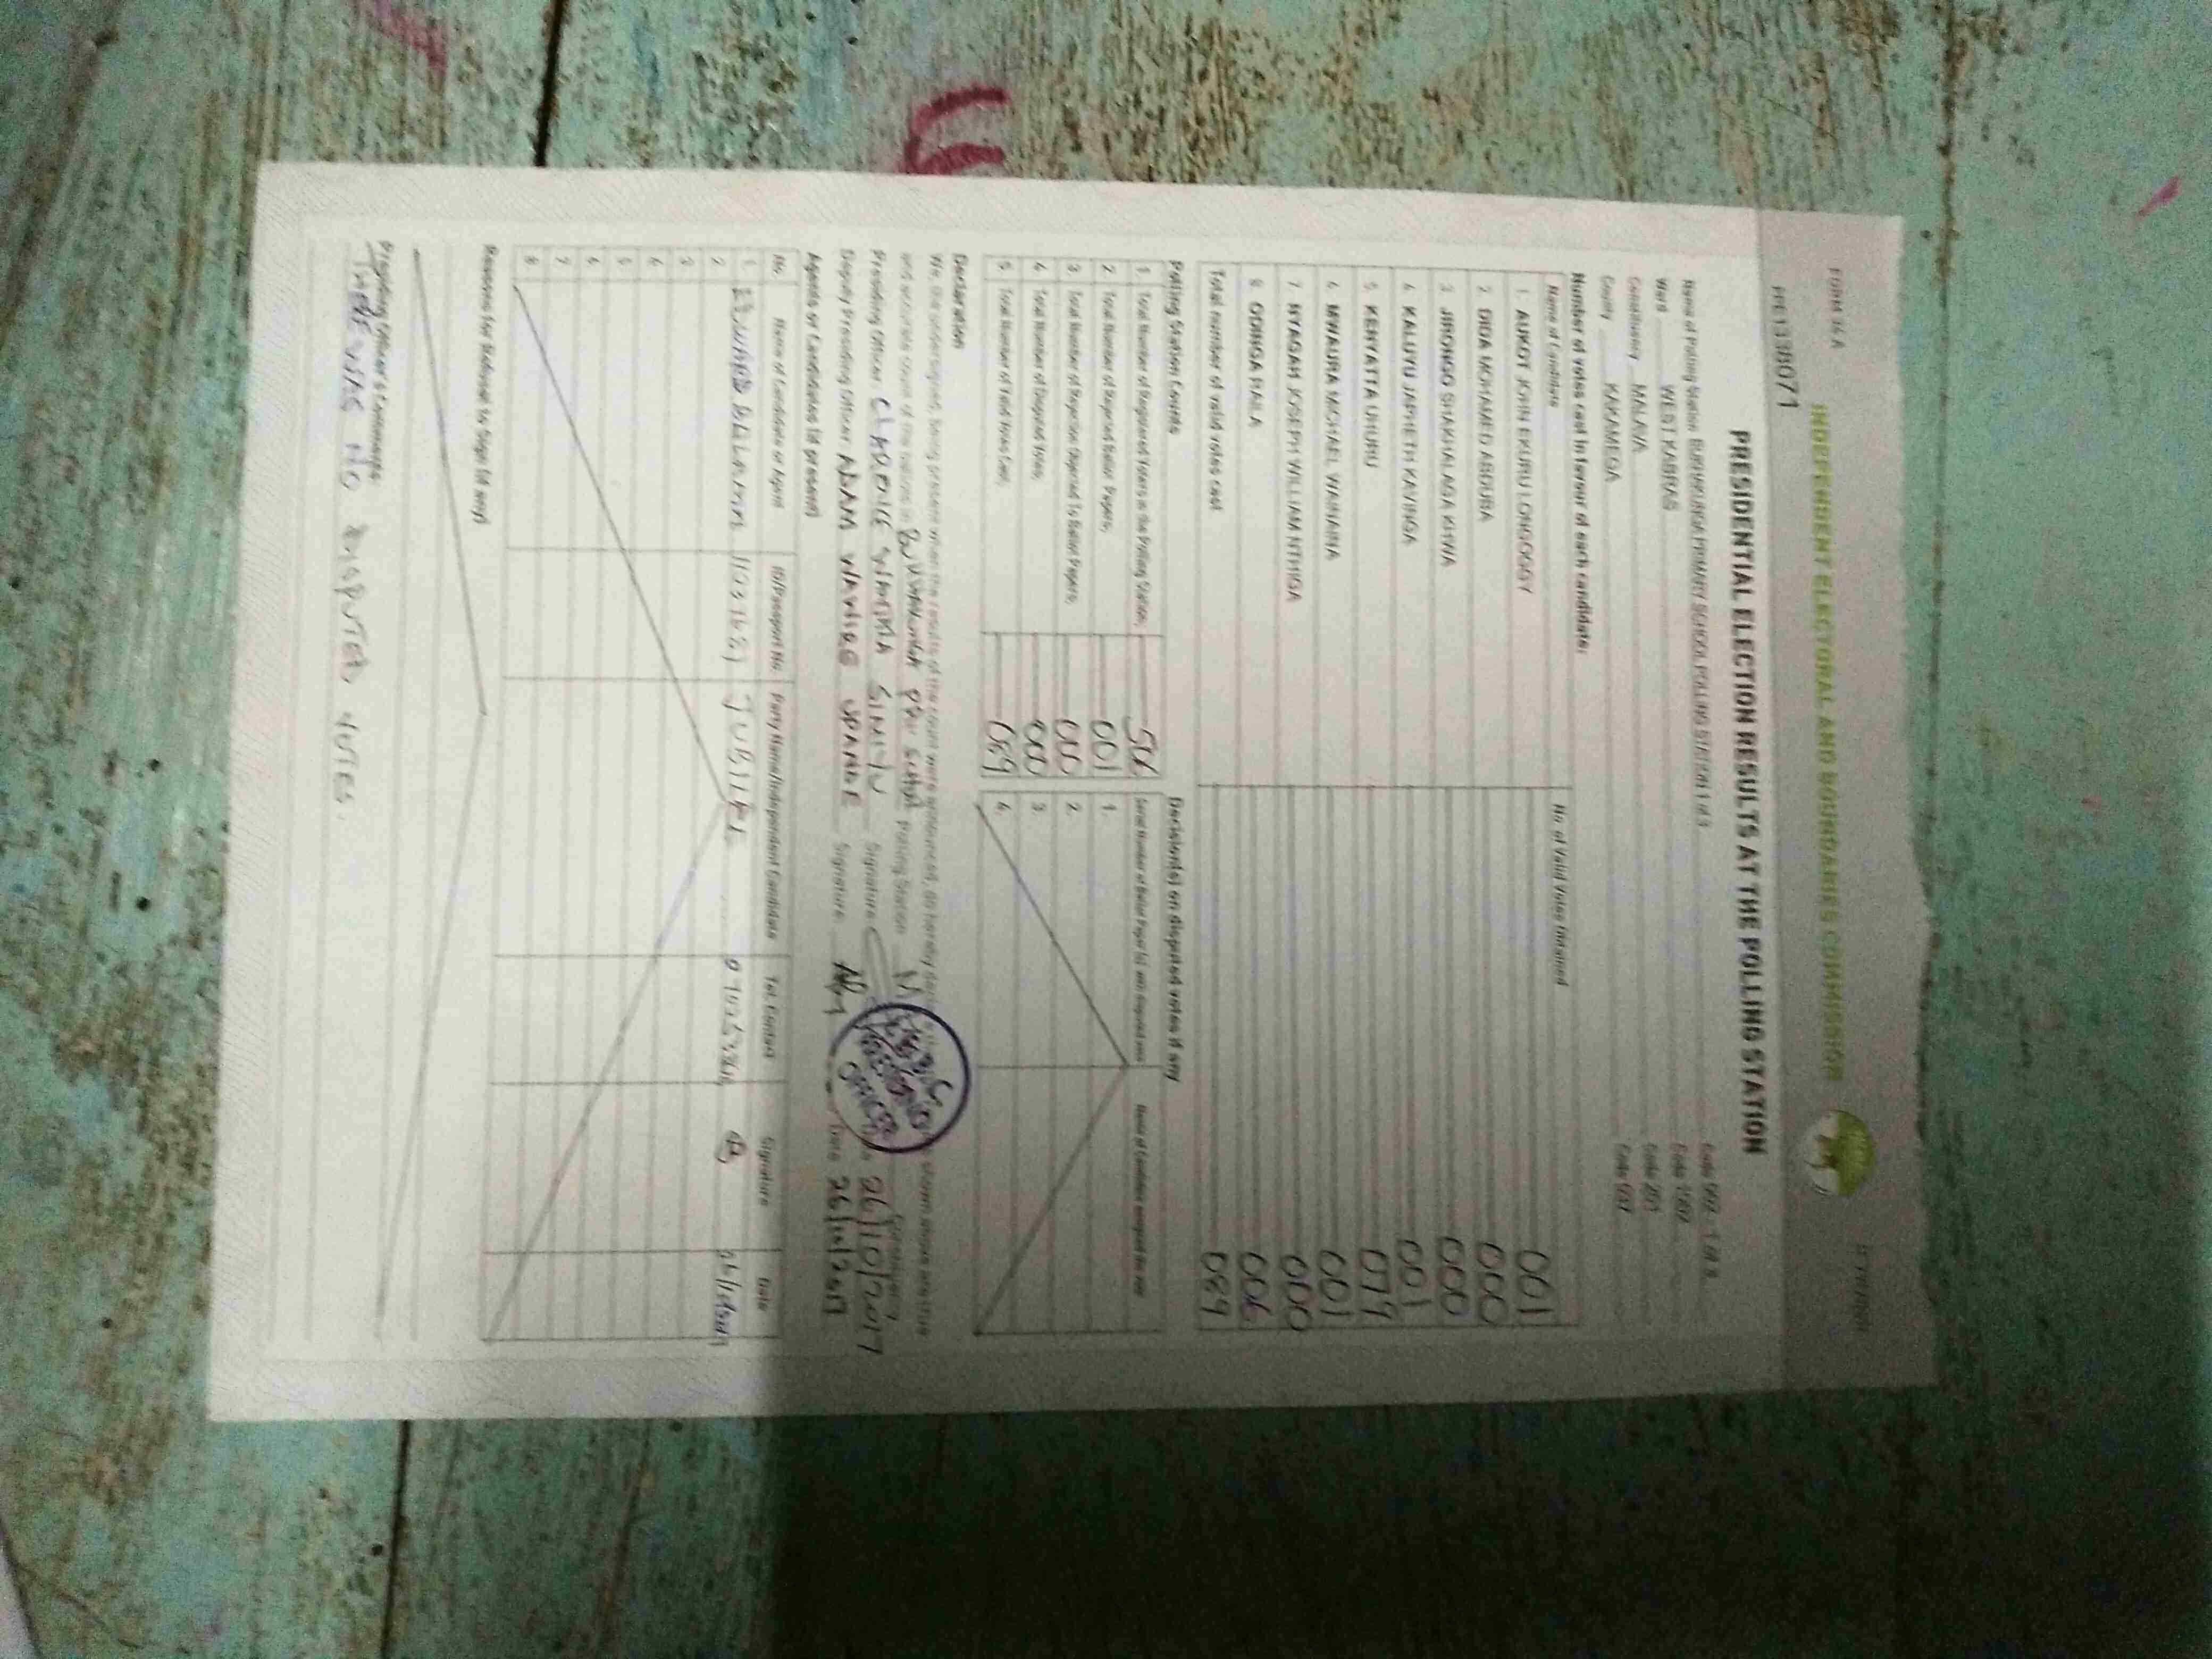 FORM 34A
INDEPENDENT ELECTORAL AND BOUNDARIES COMMISSION
PRESIDENTIAL ELECTION RESULTS AT THE POLLING STATION
Name of Polling Station PRIMARY SCHOOL POLLING STATION 1 of
Ward WEST KABRAS
Constituency MALAVA Code 201
County KAKAMEGA Code 037
Number of votes cast in favour of each candidate:
Name of Candidate No of Valid Votes Obtained
1. AUKOT JOHN EKURU LONGOGGY 001
2. DIDA MOHAMED ABDUBA 000
3. JIRONGO SHAKHALAGA KHWA 000
4. KALUYU JAPHETH KAVINGA 001
5. KENYATTA UHURU 079
6. MWAURA MICHAEL WAINAINA 001
7. NYAGAH JOSEPH WILLIAM NTHIGA 000
8. ODINGA RAILA 006
Total number of valid votes cast 089
Polling Station Counts
1. Total Number of Registered Voters in the Polling Station;
2. Total Number of Rejected Ballot Papers; 001
3. Total Number of Rejection Objected To Ballot Papers; 000
4. Total Number of Disputed Votes; 000
5. Total Number of Valid Votes Cast; 089
Decision(s) on disputed votes if any
Serial Number of Ballot Paper (s) with disputed vote Name of Candidate assigned the vote
1.
2.
3.
4.
Declaration
We, the undersigned, being present when the results of the count were announced, do hereby shown above are true
and accurate count of the ballots in Polling Station
Presiding Officer Signature 26/10/2017
Deputy Presiding Officer ADAM Signature Date 26/10/2017
PRESIDING
OFFICER
Agents or Candidates (if present)
No. Name of Candidate or Agent ID/Passport No. Party Name/Independent Candidate Tel. Contact Signature Date
1. JUBILEE
2
3
4
5
6
7
8
Reasons for Refusal to Sign (if any)
Presiding Officer's Comments
THERE WAS NO DISPUTED VOTES.